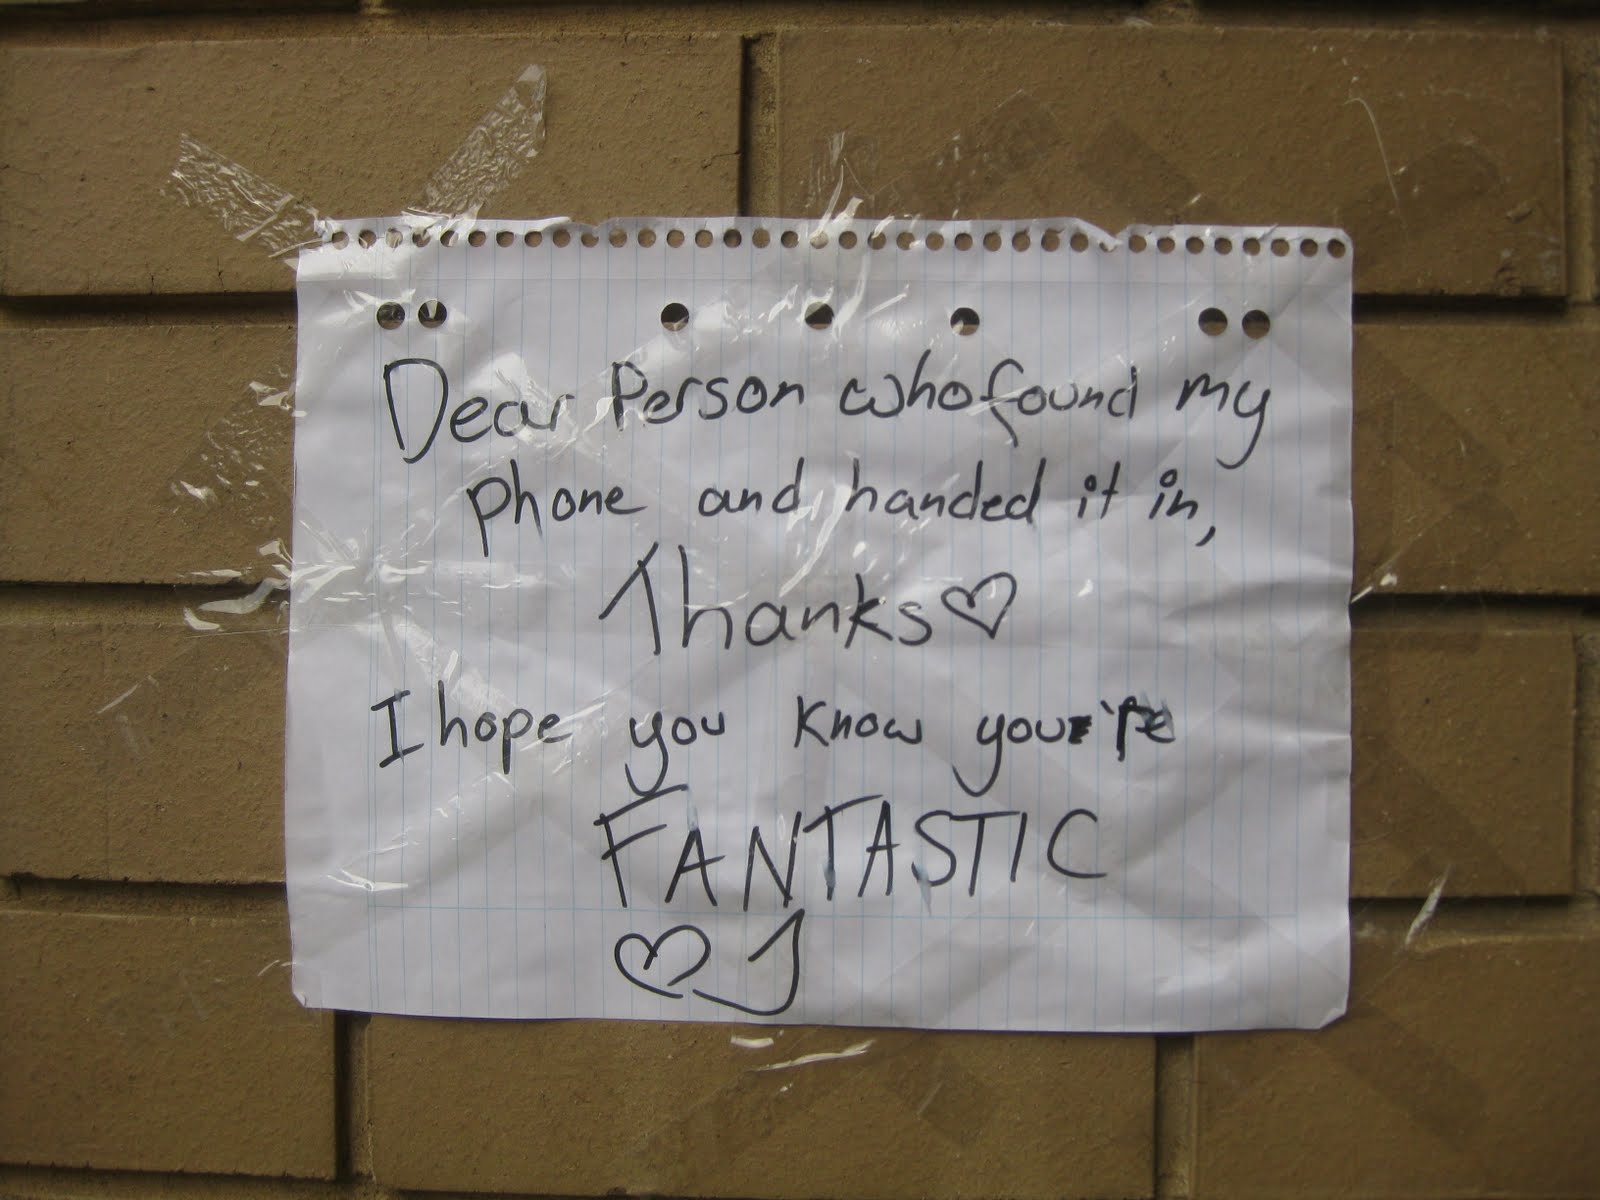 Dear Person who found my
phone and handed it in,
Thanks♡
I hope you know you're
FANTASTIC
♡J